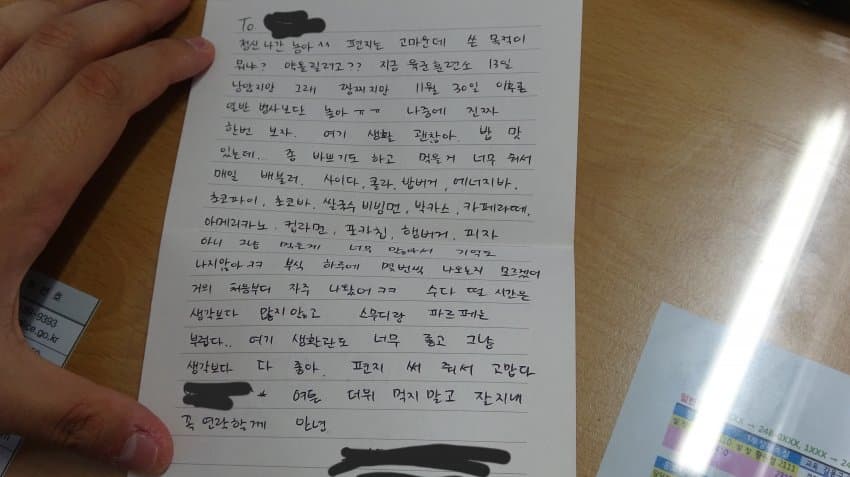 To
정신나간 놈아^^ 편지는 고마운데 쓴 목적이
뭐냐? 약올릴려고?? 지금 육군훈련소 13일
남았지만 그래 짬찌지만 11월 30일 이후론
일반 병사보단 높아ㅠㅠ 나중에 진짜
한번 보자. 여기 생활 괜찮아. 밥 맛
있는데.. 좀 바쁘기도 하고 먹을거 너무 줘서
매일 배불러. 사이다, 콜라, 밥버거, 에너지바,
초코파이, 초코바, 쌀국수 비빔면, 박카스, 카페라떼,
아메리카노, 컵라면, 포카칩, 햄버거, 피자
아니 그냥 먹은게 너무 많아서 기억도
나지않아ㅋㅋ 부식 하루에 몇번씩 나오는지 모르겠어
거의 처음부터 자주 나왔어ㅋㅋ 수다 떨 시간은
생각보다 많지 않고 스무디랑 파르페는
부럽다.. 여기 생활관도 너무 좋고 그냥
생각보다 다 좋아. 편지 써 줘서 고맙다
여튼 더위 먹지말고 잘지내
꼭 연락할게 안녕
번호
-9393
ce.go.kr